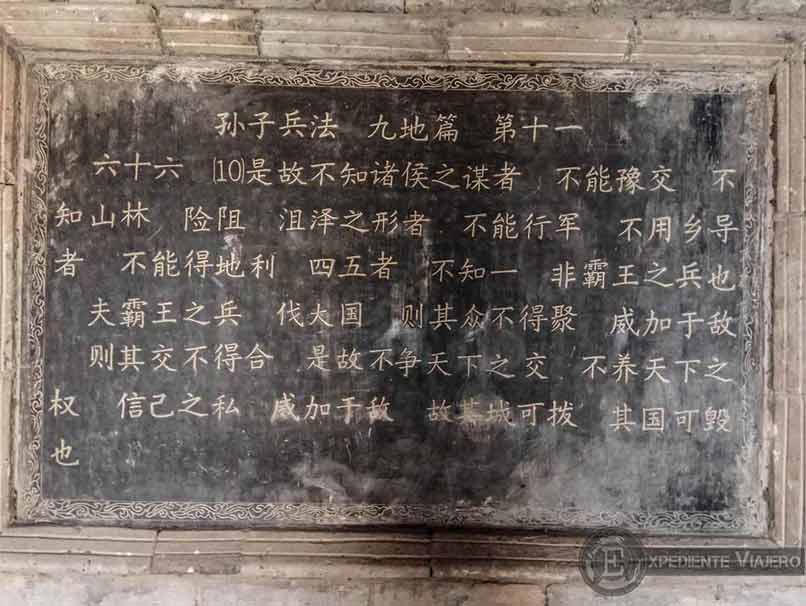 孙子兵法 九地篇 第十一
六十六 ⑽是故不知诸侯之谋者 不能豫交 不
知山林 险阻 沮泽之形者 不能行军 不用乡导
者 不能得地利 四五者 不知一 非霸王之兵也
夫霸王之兵 伐大国 则其众不得聚 威加于敌
则其交不得合 是故不争天下之交 不养天下之
权 信己之私 威加于敌 故其城可拨 其国可毁
也
EXPEDIENTE VIAJERO